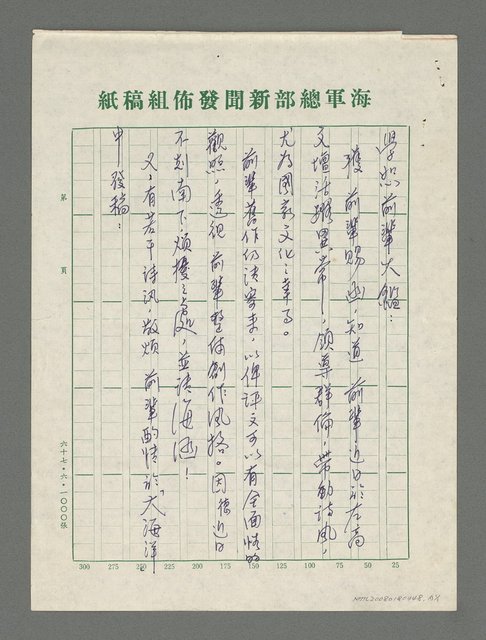 海軍總部新聞發佈組稿紙
學恕前輩大鑑：
獲 前輩賜函，知道 前輩近日於左高
文壇活躍異常，領導群倫，帶動詩風，
尤為國家文化之幸事。
前輩舊作仍請寄來，以俾評文可以有全面性的
觀照，透視 前輩整体創作風格。因德近日
不克南下，煩擾之處，並請海涵！
又，有若干詩訊，敬煩 前輩酌情於"大海洋"
中發稿：
第 頁
六十七・六・一〇〇〇張
300 275 250 225 200 175 150 125 100 75 50 25
NMTL20080180448